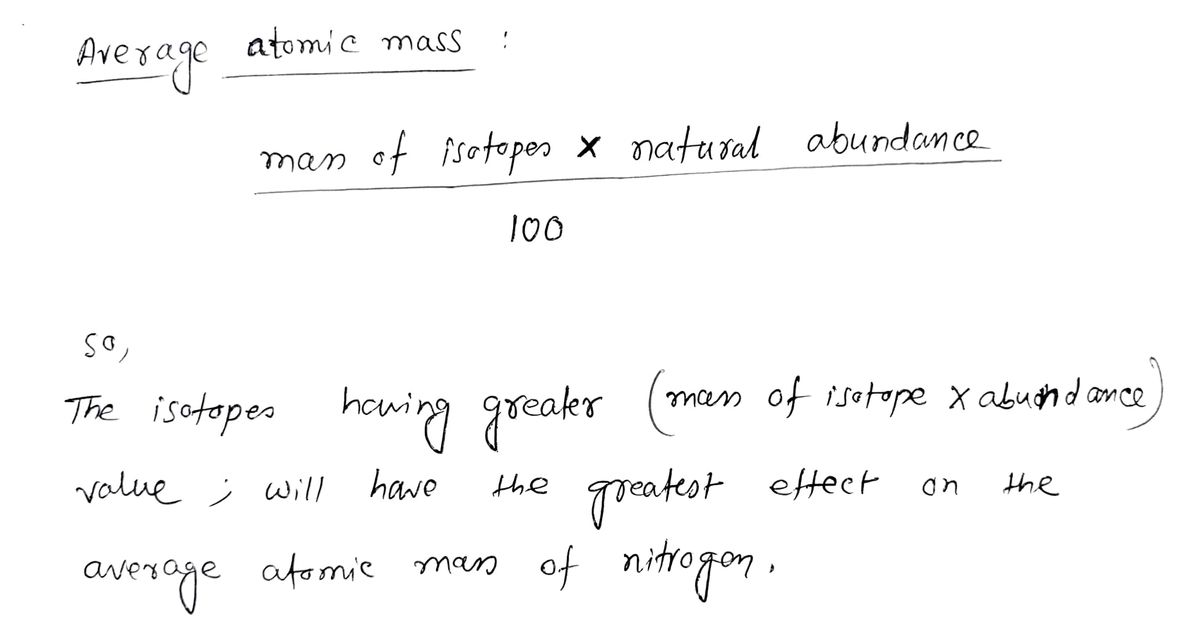 Average atomic mass :
mass of isotopes × natural abundance
100
so,
The isotopes having greater (mass of isotope × abundance)
value ; will have the greatest effect on the
average atomic mass of nitrogen.